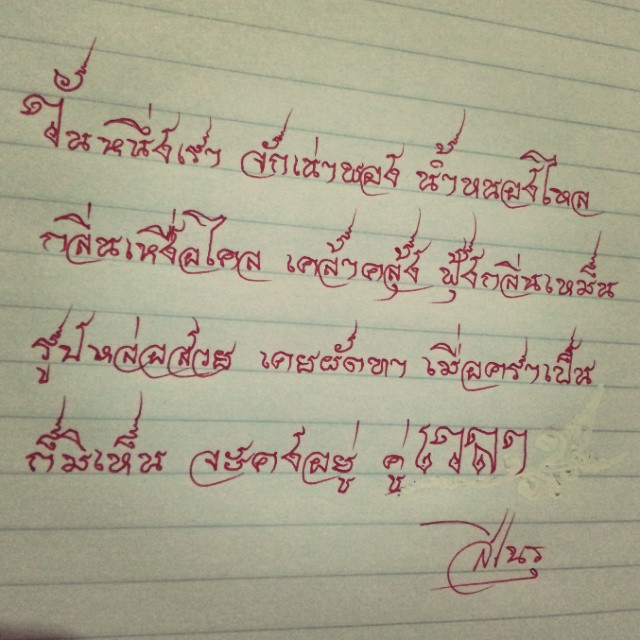 วันหนึ่งเรา จักเน่าพอง น้ำหนองไหล
กลิ่นเหงื่อไคล เคล้าคลุ้ง ฟุ้งกลิ่นเหม็น
รูปหล่อสวย เคยผัดทา เมื่อคราเป็น
ก็มิเห็น จะคงอยู่ คู่
สิเนรุ